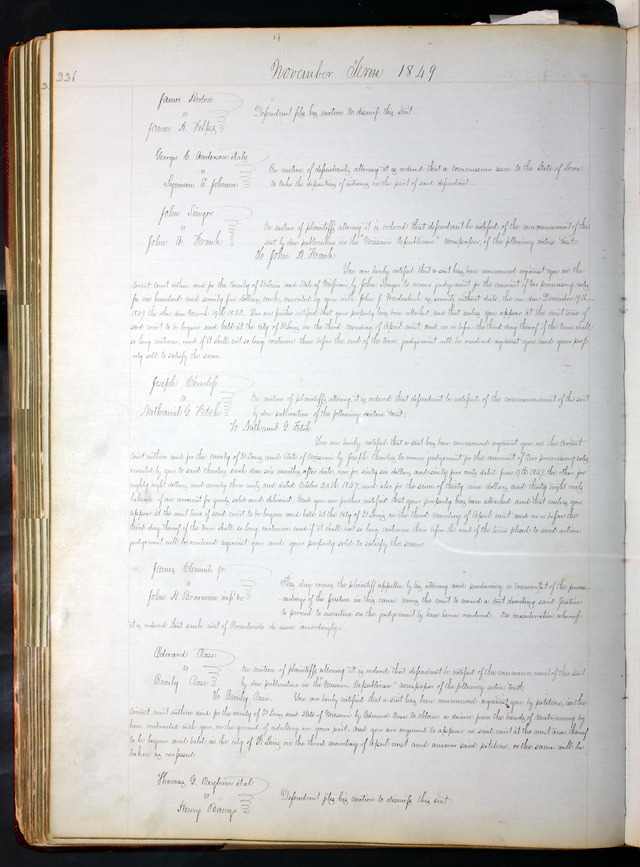 226
November Term 1849
James
vs
James A.
Defendant files his motion to dismiss this suit
George C. Anderson et al
vs
E. Johnson
On motion of defendants attorney it is ordered that a commission issue to the State of
to take the deposition of witnesses on the part of said defendant
John
vs
John A.
On motion of plaintiffs attorney it is ordered that defendant be notified of the commencement of this
suit by due publication in the "Missouri Republican" newspaper, of the following notice
To John A.
You are hereby notified that a suit has been commenced against you in the
Circuit Court within and for the County of St Louis and State of Missouri by John to recover judgement for the amount of two promissory notes
for one hundred and seventy five dollars each, executed by you with John as security without date, the one due December 19th
1849 the other due March 19th 1850. You are further notified that your property has been attached and that unless you appear at the next term of
said court to be begun and held at the city of St Louis on the third monday of April next and on or before the third day thereof if the term shall
so long continue, and if it shall not so long continue then before the end of the term, judgement will be rendered against you and your prop-
erty sold to satisfy the same
Joseph Charless
vs
Nathaniel G. Fitch
On motion of plaintiffs attorney it is ordered that defendant be notified of the commencement of this suit
by due publication of the following notice
To Nathaniel G. Fitch
You are hereby notified that a suit has been commenced against you in the Circuit
Court within and for the county of St Louis and State of Missouri by Joseph Charless to recover judgement for the amount of two promissory notes
executed by you to said Charless each due six months after date, one for sixty six dollars and sixty five cents dated June 19th 1847, the other for
eighty eight dollars and seventy three cents and dated October 30th 1847 and also for the sum of thirty nine dollars and thirty eight cents
balance of an account for goods sold and delivered. And you are further notified that your property has been attached and that unless you
appear at the next term of said court to be begun and held at the City of St Louis on the third monday of April next and on or before the
third day thereof if the term shall so long continue and if it shall not so long continue then before the end of the term plead to said action
judgement will be rendered against you and your property sold to satisfy the same.
James Clements jr.
vs
John H.
This day comes the plaintiff appellee by his attorney and producing a transcript of the proce-
edings of the Justice in this cause moves the court to award a writ directing said Justice
to proceed to execution on the judgement by him herein rendered. On consideration whereof
it is ordered that such writ of Procedendo do issue accordingly.
Edward Ross
vs
Emily Ross
On motion of plaintiffs attorney it is ordered that defendant be notified of the commencement of this suit
by due publication in the "Missouri Republican" newspaper of the following notice
To Emily Ross. You are hereby notified that a suit has been commenced against you by petition, in the
Circuit court within and for the county of St Louis and State of Missouri by Edward Ross to obtain a divorce from the bonds of matrimony by
him contracted with you on the ground of adultery on your part. And you are required to appear in said court at the next term thereof
to be begun and held in the city of St Louis on the third monday of April next and answer said petition, or the same will be
taken as confessed.
Thomas G. et al
vs
Henry
Defendant files his motion to dismiss this suit